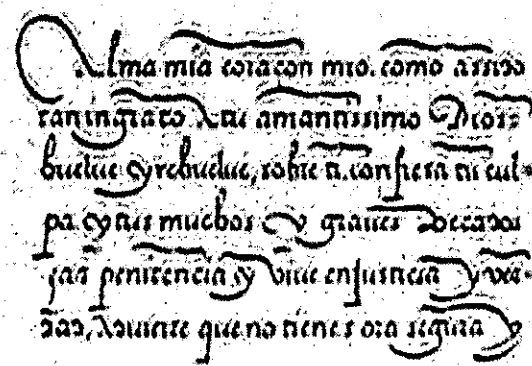 Alma mia coraçon mio. como as sido
tan ingrato A tu amantissimo Dios:
buelue y rebuelue, sobre ti. confiesa tu cul-
pa y tus muchos y graues Peccados
haz penitencia y viue en Justicia y ver-
dad, Aduierte que no tienes ora segura y